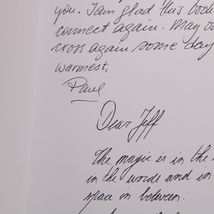 you. I am glad this book
connect again. May ou
cross again some day
warmest,
Paul
Dear Jeff
the magic is in the
in the words and in
space in between.